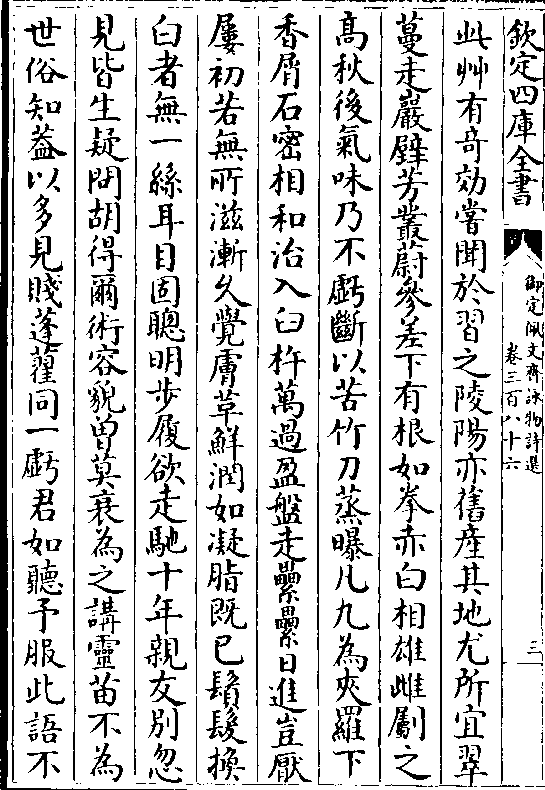 欽定四庫全書
御定佩文齋詠物詩選
卷三百八十六
三
此艸有奇効嘗聞於習之陵陽亦舊産其地尤所宜翠
蔓走巖壁芳叢蔚參差下有根如拳赤白相雄雌劚之
髙秋後氣味乃不虧斷以苦竹刀蒸曝凡九為夾羅下
香屑石蜜相和治入臼杵萬過盈盤走纍纍日進豈厭
屢初若無所滋漸久覺膚革鮮潤如凝脂既已鬚髮換
白者無一絲耳目固聰明步履欲走馳十年親友别忽
見皆生疑問胡得爾術容貌曽莫衰為之講靈苗不為
世俗知葢以多見賤蓬藋同一虧君如聽予服此語不